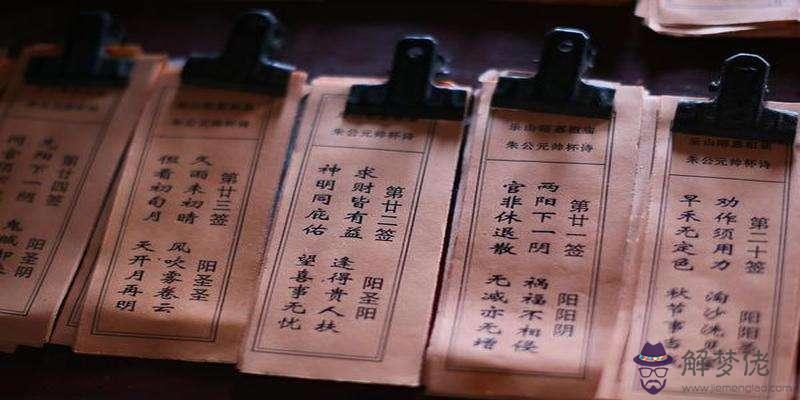 朱公元帅杯诗
第二十签 阳阳
劝作须用力 淘沙
早禾无定色 秋节事
乐山
朱公元帅杯诗
第廿一签 阳阳阴
两阳下一阴 祸福不相侵
官非休退散 无减亦无增
朱公元帅杯诗
第廿二签 阳圣阳
求财皆有益 逢得贵人扶
神明同庇佑 望喜事无忧
朱公元帅杯诗
第廿三签 阳圣圣
久雨未初晴 风吹雾卷云
但看初旬月 天开月再明
第廿四签 阳圣阴
先阳下一阴
解梦佬
www.jiemenglao.com